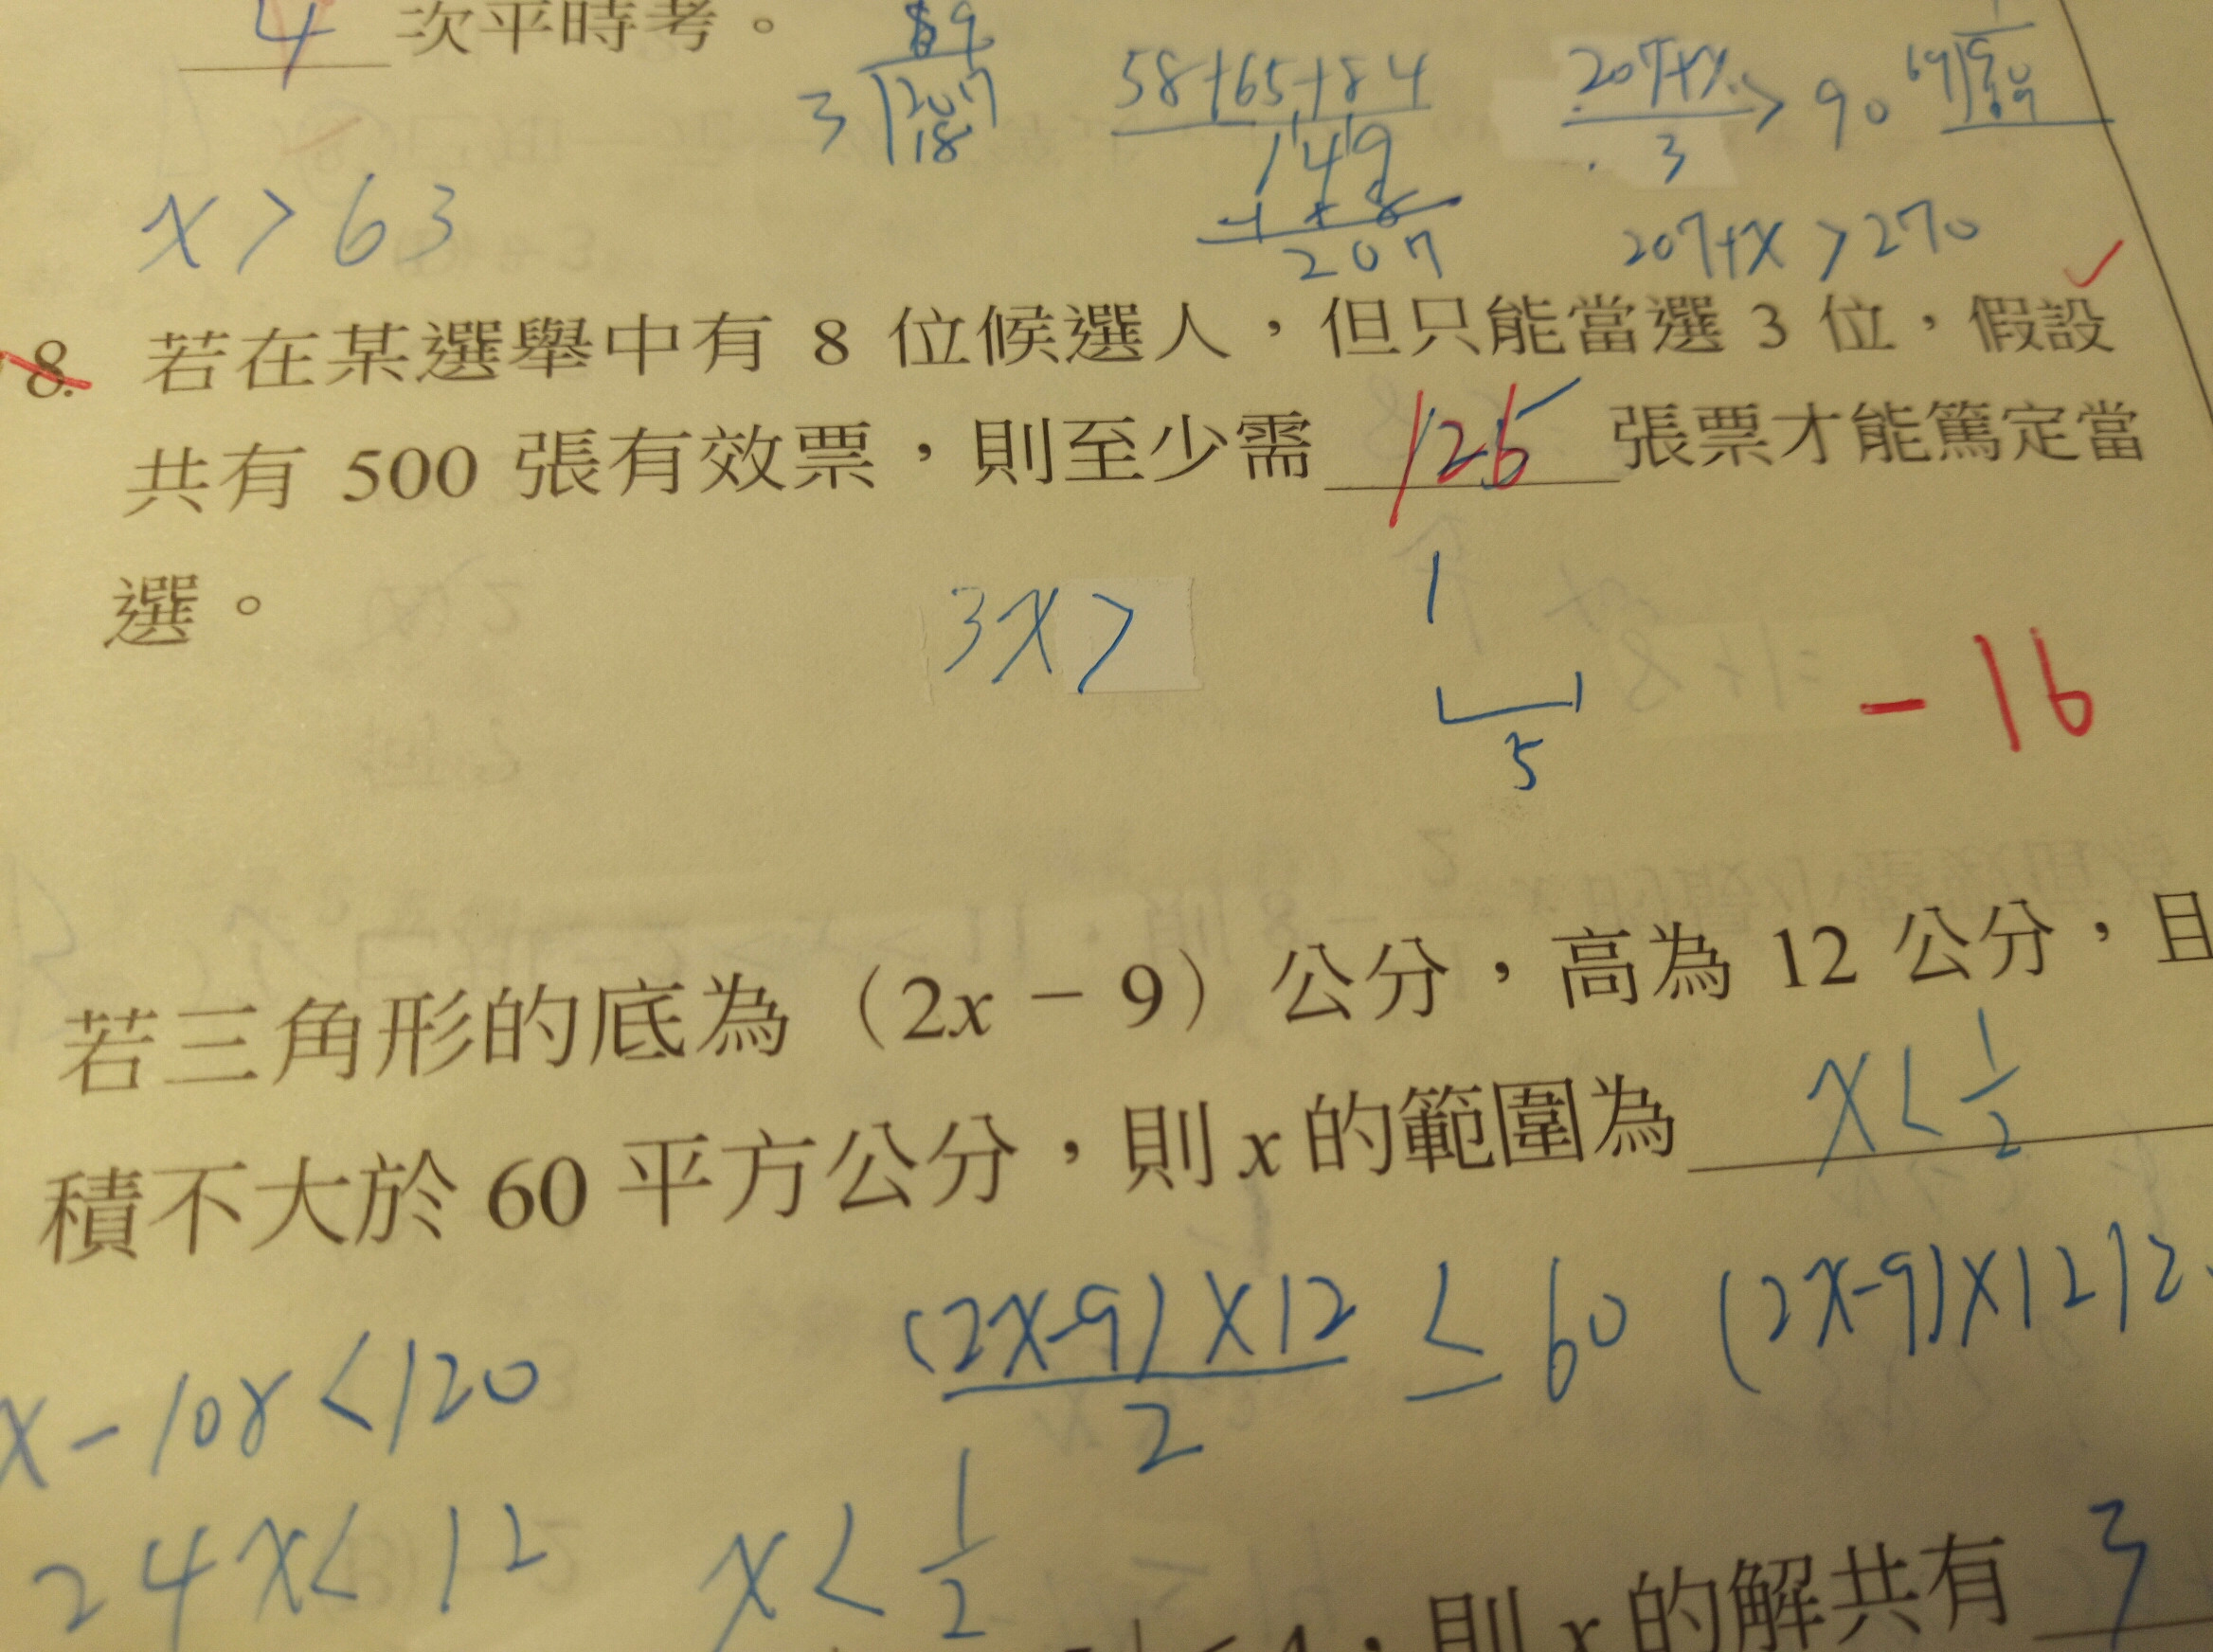 4 次平時考。
89
3 207
18
58+65+84
149
207
207+x > 90
3
207+x > 270
x > 63
8. 若在某選舉中有 8 位候選人，但只能當選 3 位，假設
共有 500 張有效票，則至少需 126 張票才能篤定當
選。
3x >
1
5
-16
若三角形的底為（2x − 9）公分，高為 12 公分，且
積不大於 60 平方公分，則 x 的範圍為 x < 1/2
(2x-9)×12 ≤ 60
2
(2x-9)×12
x - 108 < 120
24x < 12
x < 1/2
則 x 的解共有 3